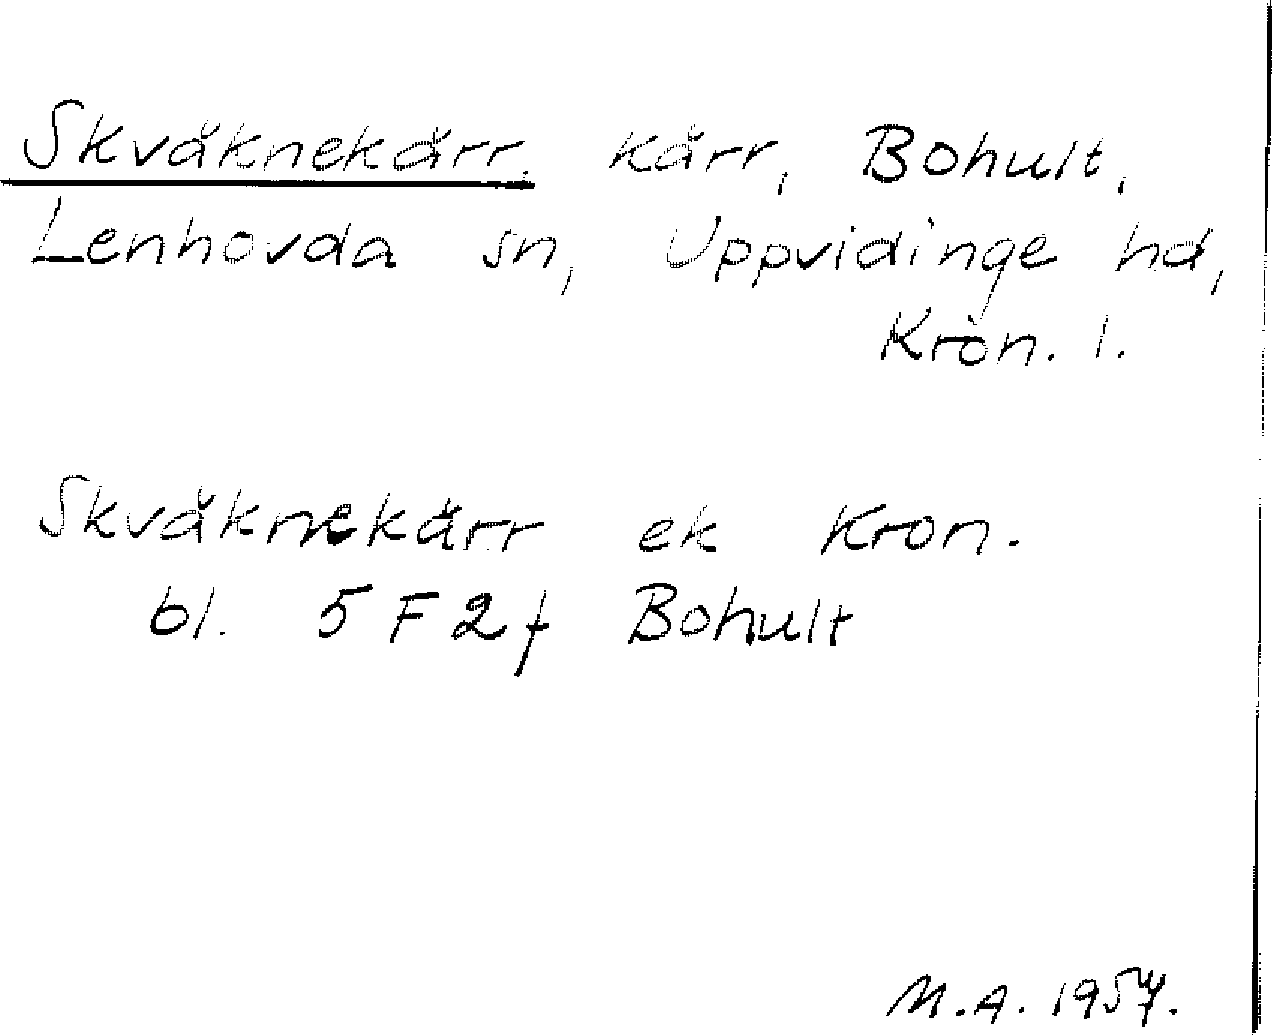 Skväknekärr, kärr, Bohult,
Lenhovda sn, Uppvidinge hd,
Kron. l.
Skväknekärr ek Kron.
bl. 5 F 2 f Bohult
M.A. 1957.